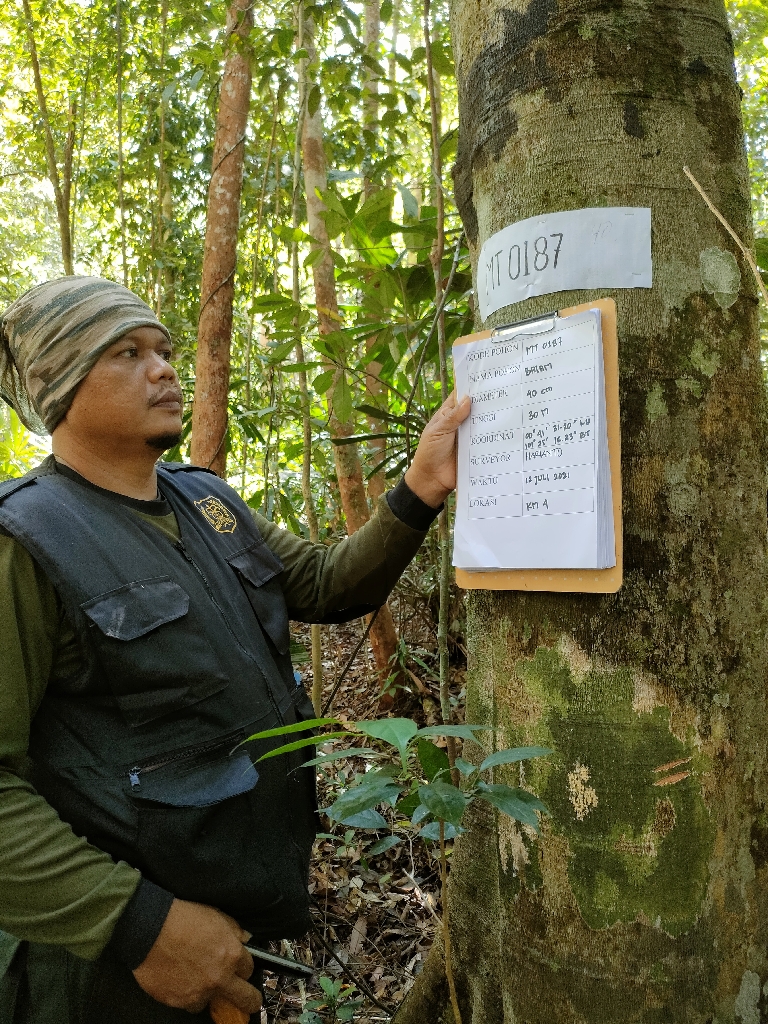 MT 0187
KODE POHON MT 0187
NAMA POHON
DIAMETER 40 cm
TINGGI 30 M
KOORDINAT 00° 41' 31.20" LU
109° 25' 16.23" BT
SURVEYOR HARIANTO
WAKTU 12 JULI 2021
LOKASI KM 4